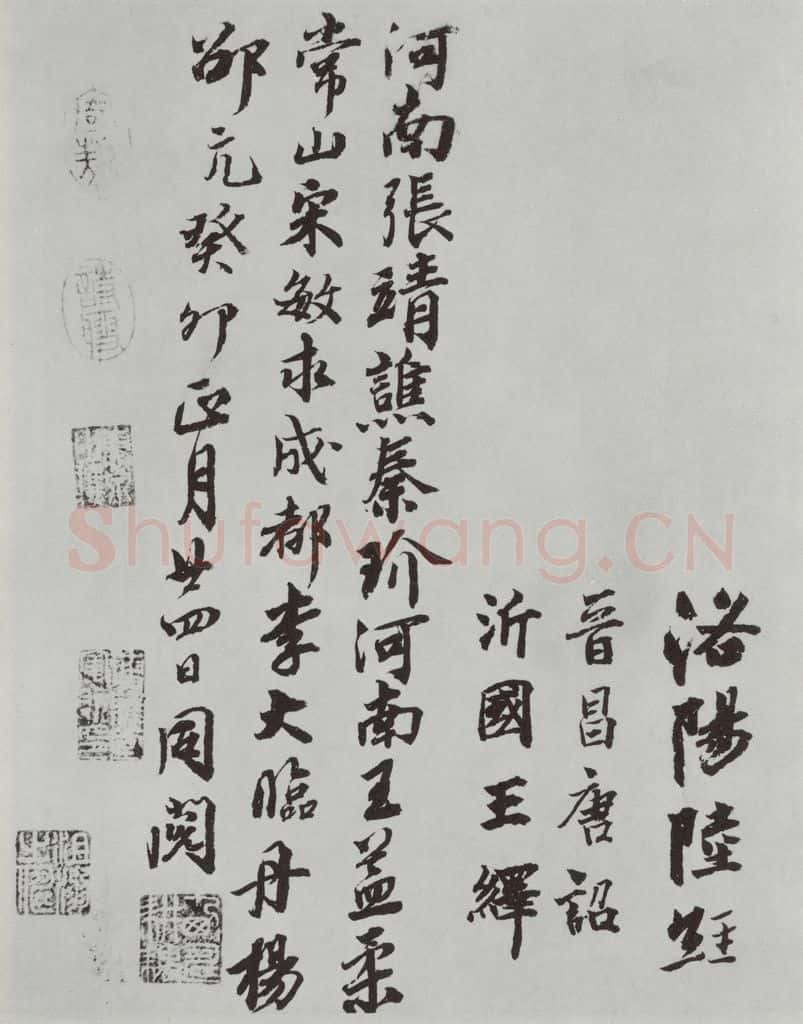 洛陽陸經
晉昌唐詔
沂國王繹
河南張靖譙秦玠河南王益柔
常山宋敏求成都李大臨丹楊
邵亢癸卯正月廿四日同閱
Shufawang.CN